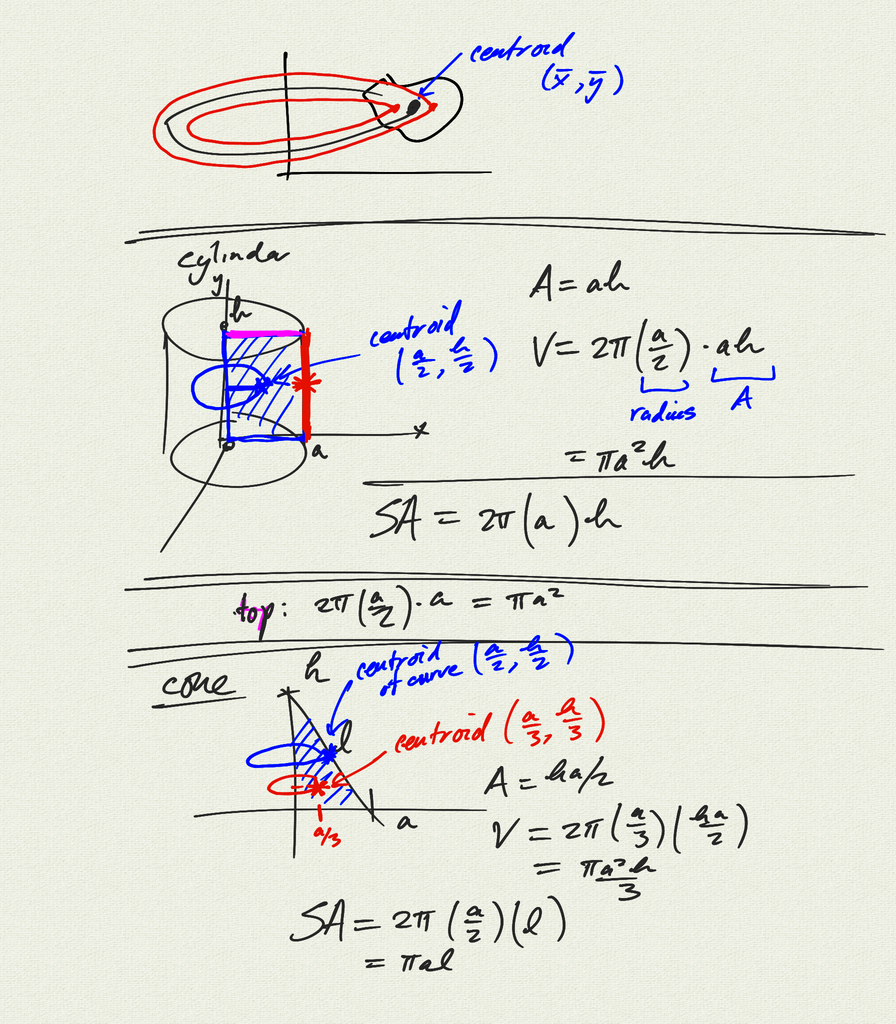 centroid
(x̄, ȳ)
cylinder
y
h
centroid
(a/2, h/2)
x
a
A = ah
V = 2π(a/2) · ah
radius
A
= πa²h
SA = 2π(a)h
top: 2π(a/2)·a = πa²
cone
h
centroid
of curve (a/2, h/2)
l
centroid (a/3, h/3)
a
a/3
A = ha/2
V = 2π(a/3)(ha/2)
= πa²h/3
SA = 2π(a/2)(l)
= πal